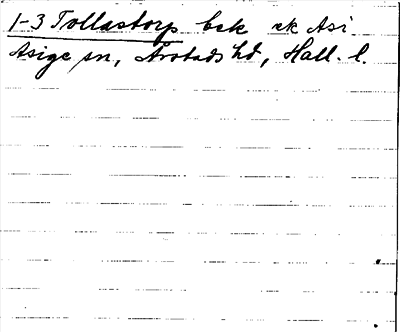 1-3 Tollastorp bek ek Asi
Asige sn, Årstads hd, Hall. l.